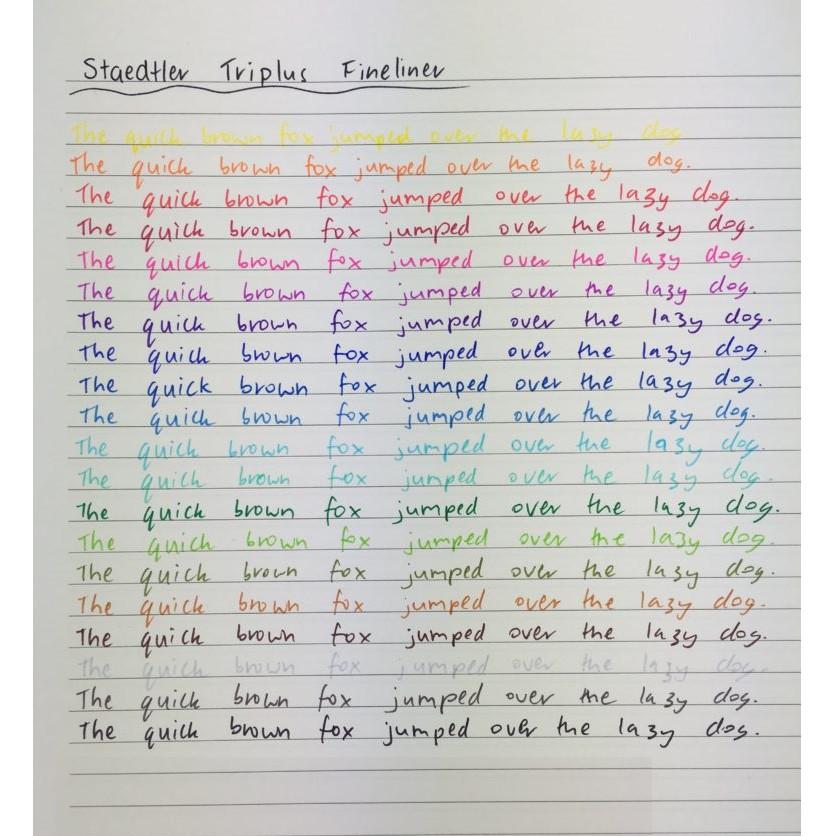 Staedtler Triplus Fineliner
The quick brown fox jumped over the lazy dog
The quick brown fox jumped over the lazy dog.
The quick brown fox jumped over the lazy dog.
The quick brown fox jumped over the lazy dog.
The quick brown fox jumped over the lazy dog.
The quick brown fox jumped over the lazy dog.
The quick brown fox jumped over the lazy dog.
The quick brown fox jumped over the lazy dog.
The quick brown fox jumped over the lazy dog.
The quick brown fox jumped over the lazy dog.
The quick brown fox jumped over the lazy dog.
The quick brown fox jumped over the lazy dog.
The quick brown fox jumped over the lazy dog.
The quick brown fox jumped over the lazy dog.
The quick brown fox jumped over the lazy dog.
The quick brown fox jumped over the lazy dog.
The quick brown fox jumped over the lazy dog.
The quick brown fox jumped over the lazy dog.
The quick brown fox jumped over the lazy dog.
The quick brown fox jumped over the lazy dog.